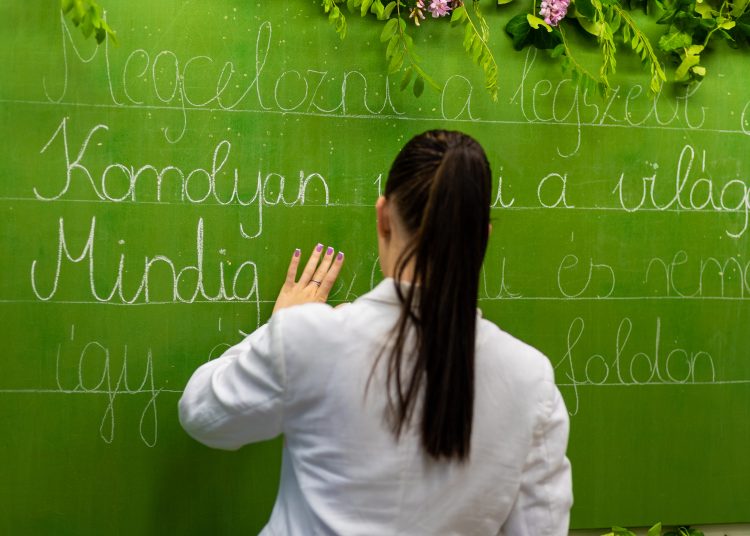 Megcélozni a legszeb
Komolyan a világ
Mindig és rem
így földön